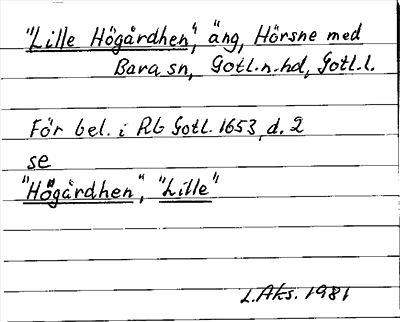 "Lille Högårdhen", äng, Hörsne med
Bara sn, Gotl.n.hd, Gotl.l.
För bel. i Rb Gotl. 1653, d. 2
se
"Högårdhen", "Lille"
L.Aks. 1981